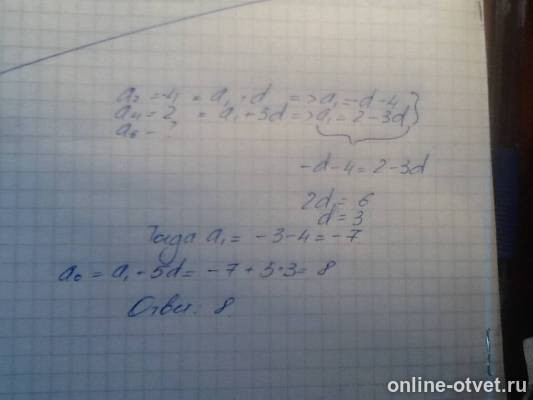 a₂ = -4 = a₁ + d => a₁ = -d - 4
a₄ = 2 = a₁ + 3d => a₁ = 2 - 3d
a₆ - ?
-d - 4 = 2 - 3d
2d = 6
d = 3
Тогда a₁ = -3 - 4 = -7
a₆ = a₁ - 5d = -7 + 5·3 = 8
Ответ: 8.
online-otvet.ru